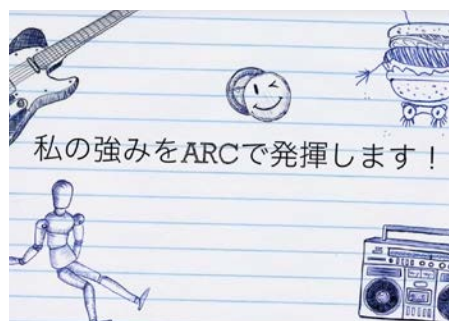 私の強みをARCで発揮します！